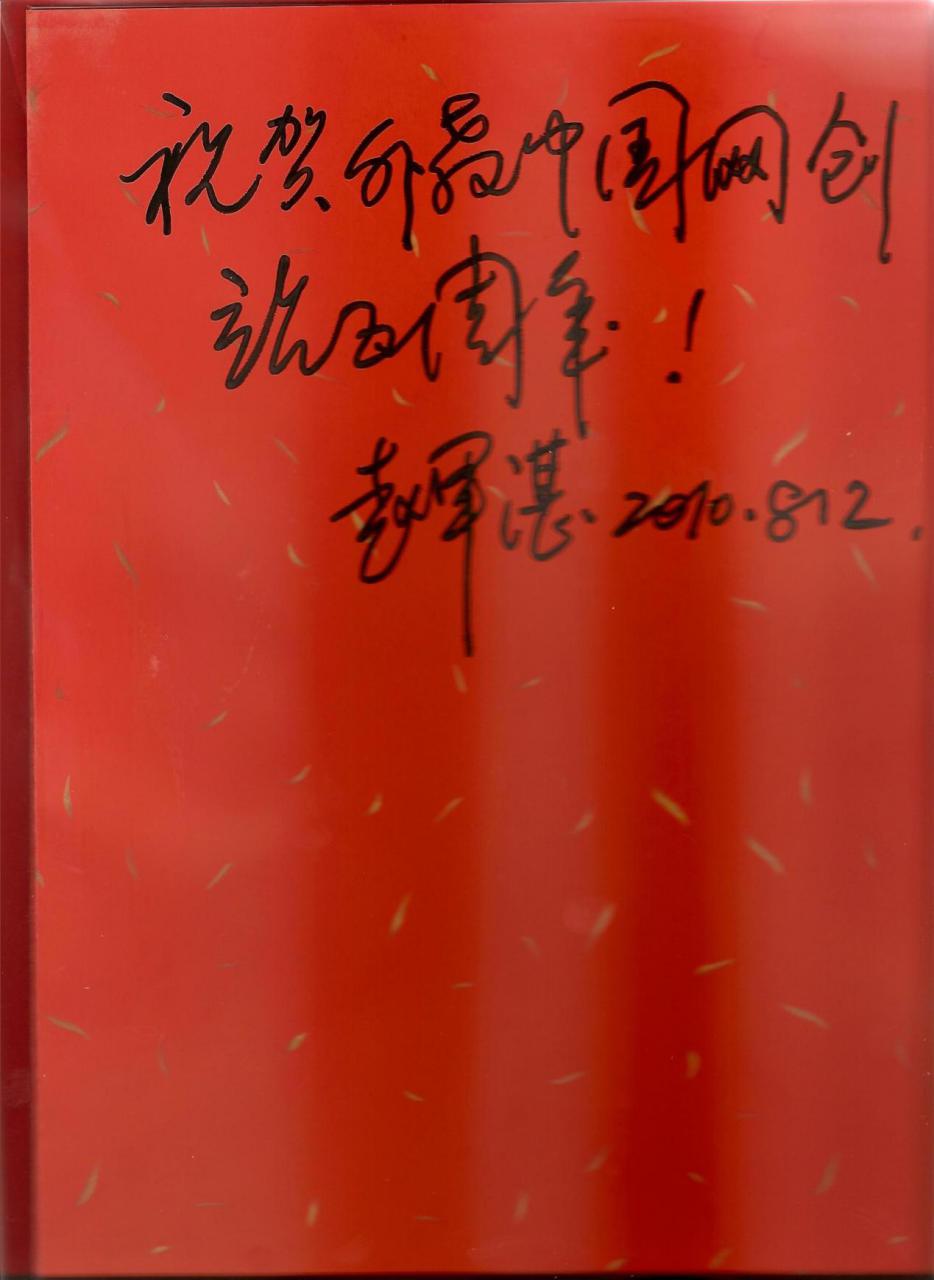 祝贺外教中国网创
站五周年！
赵军湛 2010.8.12.